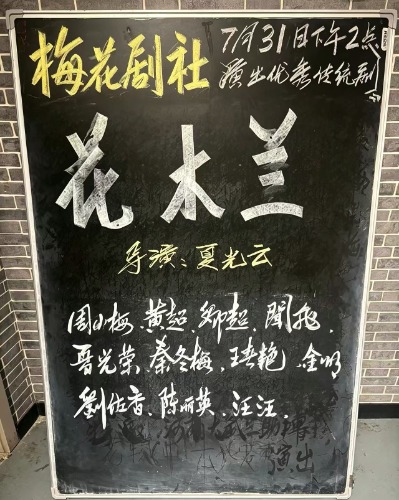 梅花剧社
7月31日下午2点
演出优秀传统剧
花木兰
导演:夏光云
周小梅、黄超、卿超、闻飞、
晋光荣、秦冬梅、王艳、金明
劉佐香、陈丽英、汪汪、
演出